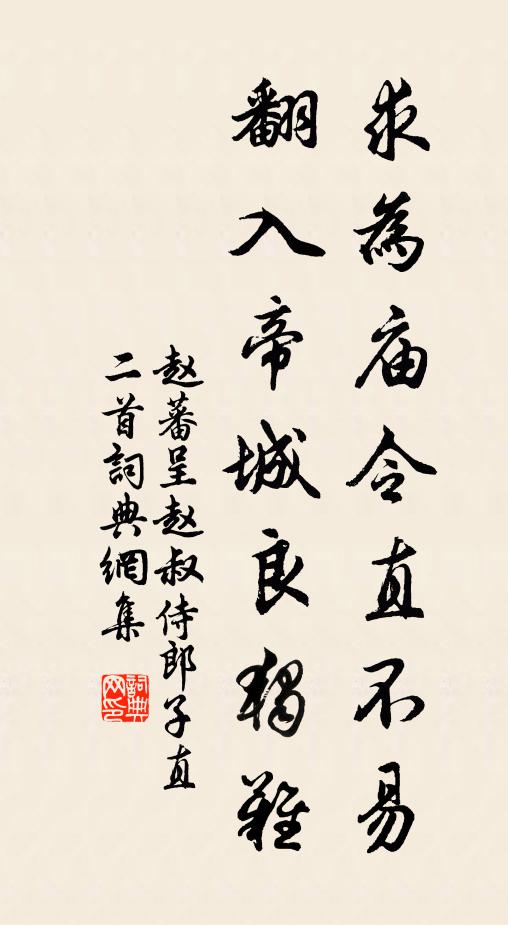 求為庙令直不易
翻入帝城良獨難
赵蕃呈赵叔侍郎子直
二首詞典網集
詞典
网印